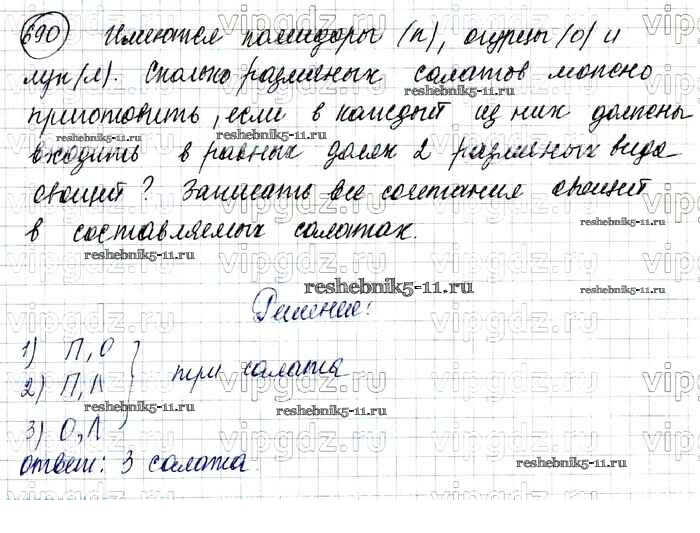 690 Имеются помидоры (п), огурцы (о) и
лук (л). Сколько различных салатов можно
приготовить, если в каждый из них должны
входить в равных долях 2 различных вида
овощей? Записать все сочетания овощей
в составляемых салатах.
Решение:
1) П, О
2) П, Л
3) О, Л
три салата
ответ: 3 салата.
reshebnik5-11.ru
vipgdz.ru